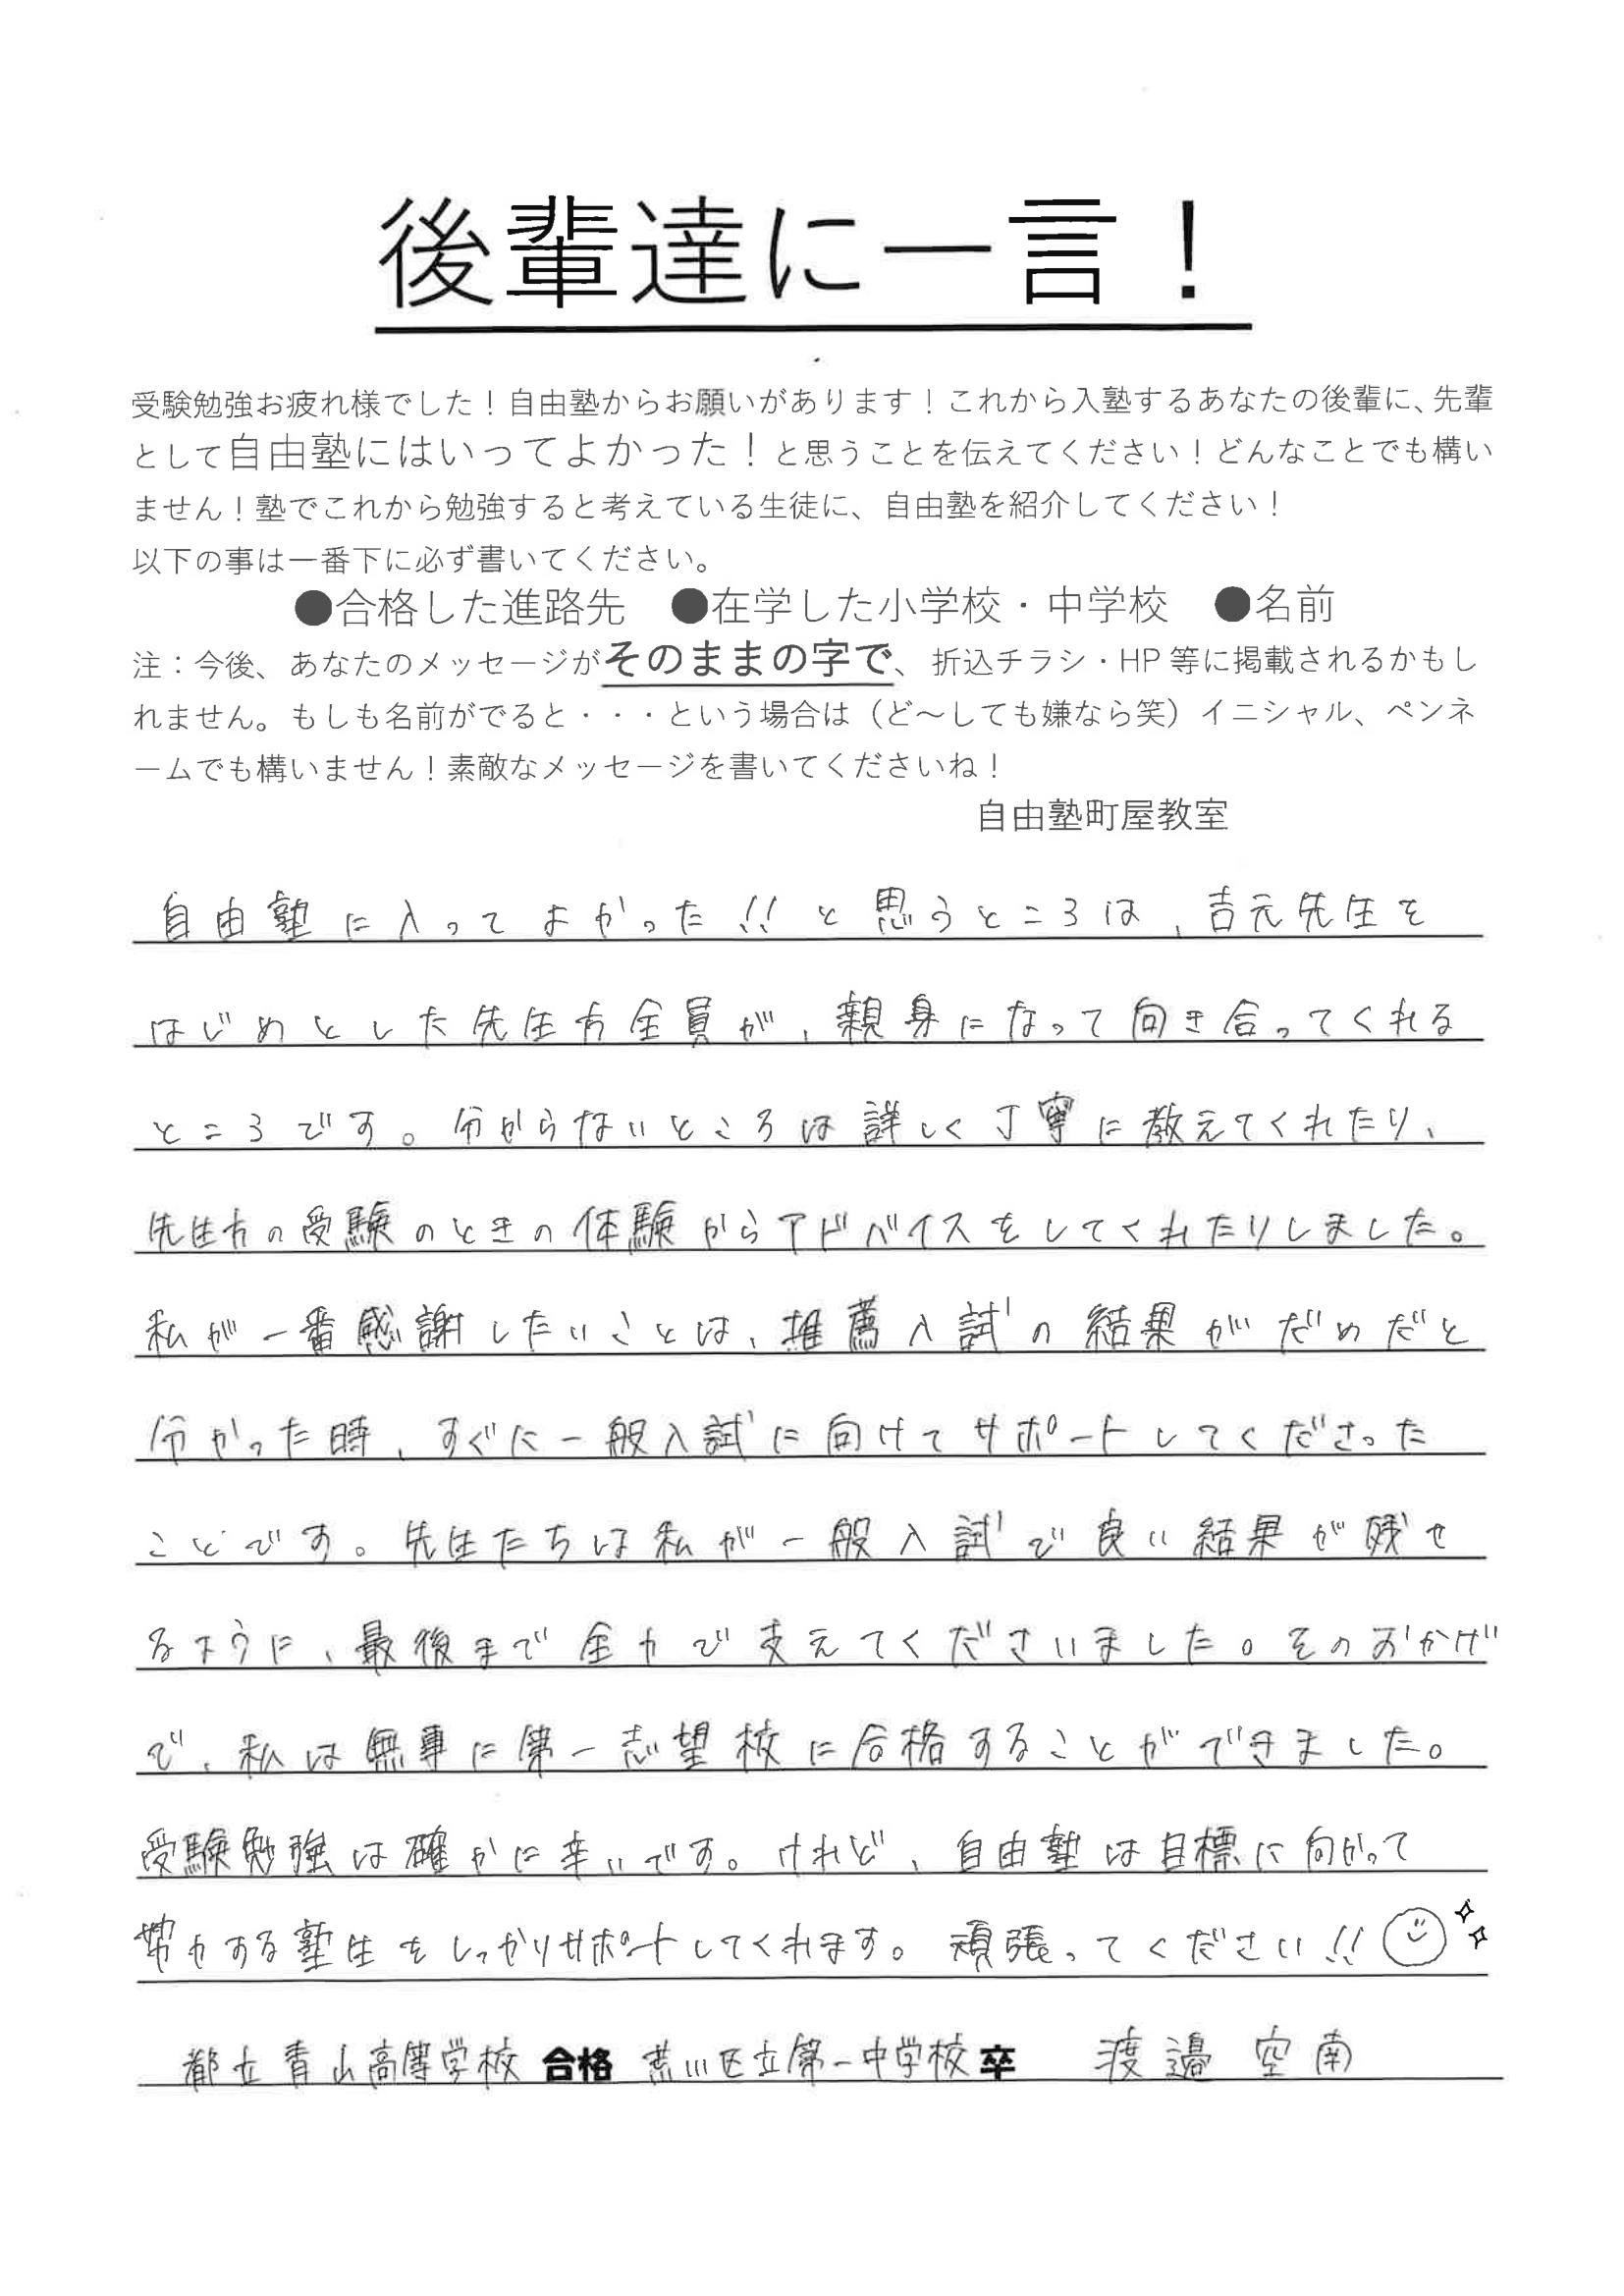 後輩達に一言！
受験勉強お疲れ様でした！自由塾からお願いがあります！これから入塾するあなたの後輩に、先輩
として自由塾にはいってよかった！と思うことを伝えてください！どんなことでも構い
ません！塾でこれから勉強すると考えている生徒に、自由塾を紹介してください！
以下の事は一番下に必ず書いてください。
●合格した進路先　●在学した小学校・中学校　●名前
注：今後、あなたのメッセージがそのままの字で、折込チラシ・HP 等に掲載されるかもし
れません。もしも名前がでると・・・という場合は（ど～しても嫌なら笑）イニシャル、ペンネ
ームでも構いません！素敵なメッセージを書いてくださいね！
自由塾町屋教室
自由塾に入ってよかった!!と思うところは、吉元先生を
はじめとした先生方全員が、親身になって向き合ってくれる
ところです。分からないところは詳しく丁寧に教えてくれたり、
先生方の受験のときの体験からアドバイスをしてくれたりしました。
私が一番感謝したいことは、推薦入試の結果がだめだと
分かった時、すぐに一般入試に向けてサポートしてくださった
ことです。先生たちは私が一般入試で良い結果が残せ
るように、最後まで全力で支えてくださいました。そのおかげ
で、私は無事に第一志望校に合格することができました。
受験勉強は確かに辛いです。けれど、自由塾は目標に向かって
努力する塾生をしっかりサポートしてくれます。頑張ってください!!
都立青山高等学校 合格 荒川区立第一中学校 卒　渡邉 空南